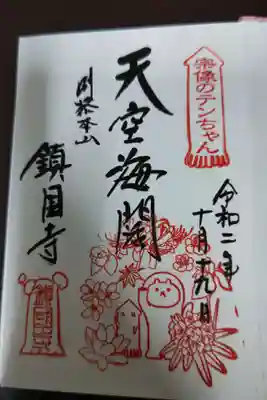 宗像のテンちゃん
令和二年
十月十九日
天空海闊
別格本山
鎮国寺